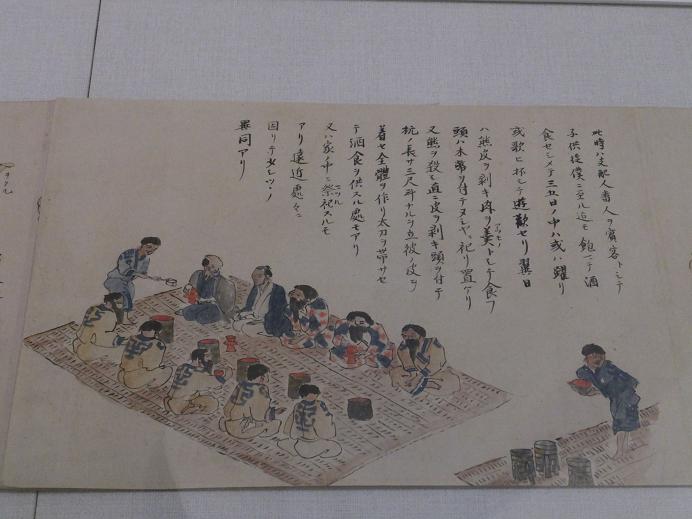 此時ハ支配人番人ヲ賓客トシテ
子供従僕ニ至ル迄モ飽マテ酒
食セシメテ三五日ノ中ハ或ハ躍リ
或歌ヒ杯シテ遊歓セリ翌日
ハ熊皮ヲ剥キ肉ヲ美トシテ食フ
頭ハ木幣ヲ付テヌシヤニ祀リ置ケリ
又熊ヲ殺シ直ニ皮ヲ剥キ頭ヲ付テ
杭ノ長サ三尺斗ナルヲ立彼ノ皮ヲ
着セ全體ヲ作リ太刀ヲ帯サセ
テ酒食ヲ供スル處モアリ
又ハ家ノ中ニ祭祀スルモ
アリ遠近處々ニ
因リテ少シツヽノ
異同アリ